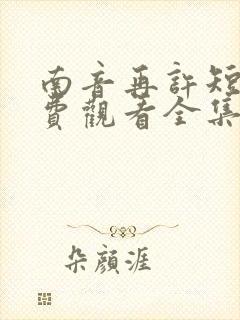 南音再許短
費觀看全集
朵顏涯